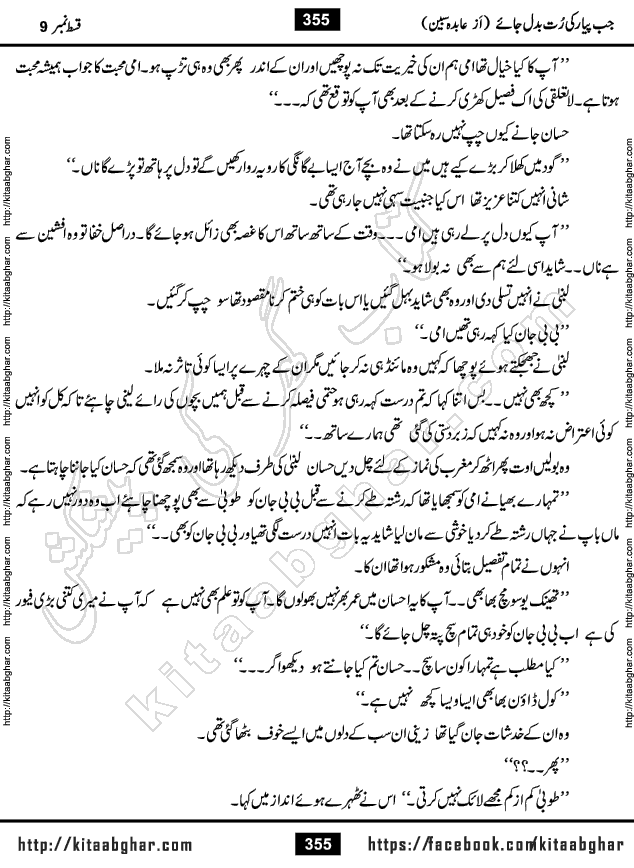 جب پیار کی رُت بدل جائے (از عابدہ سبین) 355 قسط نمبر 9
’’آپ کا کیا خیال تھا امی ہم ان کی خیریت تک نہ پوچھیں اور ان کے اندر پھر بھی وہ ہی تڑپ ہو۔ امی محبت کا جواب ہمیشہ محبت
ہوتا ہے۔ لا تعلقی کی اک فصیل کھڑی کرنے کے بعد بھی آپ کو توقع تھی کہ۔۔۔‘‘
حسان جانے کیوں چپ نہیں رہ سکتا تھا۔
’’گود میں کھلا کر بڑے کیے ہیں میں نے وہ بچے آج ایسا بے گانگی کا رویہ روا رکھیں گے تو دل پر ہاتھ تو پڑے گا ناں۔‘‘
شانی انہیں کتنا عزیز تھا اس کیا جنبیت سہی نہیں جا رہی تھی۔
’’آپ کیوں دل پر لے رہی ہیں امی۔۔۔ وقت کے ساتھ ساتھ اس کا غصہ بھی زائل ہو جائے گا۔ دراصل خفا تو وہ افشین سے
ہے ناں۔۔ شاید اسی لئے ہم سے بھی نہ بولا ہو۔‘‘
لبنیٰ نے انہیں تسلی دی اور وہ بھی شاید بہل گئیں یا اس بات کو ہی ختم کرنا مقصود تھا سو چپ کر گئیں۔
’’بی بی جان کیا کہہ رہی تھیں امی۔‘‘
لبنیٰ نے جھجکتے ہوئے پوچھا کہ کہیں وہ مائنڈ ہی نہ کر جائیں مگر ان کے چہرے پر ایسا کوئی تاثر نہ ملا۔
’’کچھ بھی نہیں۔۔ بس اتنا کہا کہ تم درست کہہ رہی ہو حتمی فیصلہ کرنے سے قبل ہمیں بچوں کی رائے لینی چاہئے تا کہ کل کو انہیں
کوئی اعتراض نہ ہو اور وہ نہ کہیں کہ زبردستی کی گئی تھی ہمارے ساتھ۔۔‘‘
وہ بولیں اوت پھر اٹھ کر مغرب کی نماز کے لئے چل دیں حسان لبنیٰ کی طرف دیکھ رہا تھا اور وہ سمجھ گئی تھی کہ حسان کیا جاننا چاہتا ہے۔
’’تمہارے بھیا نے امی کو سمجھایا تھا کہ رشتہ طے کرنے سے قبل بی بی جان کو طوبیٰ سے بھی پوچھنا چاہئے اب وہ دور نہیں رہے کہ
ماں باپ نے جہاں رشتہ طے کر دیا خوشی سے مان لیا شاید یہ بات انہیں درست لگی تھی اور بی بی جان کو بھی۔۔‘‘
انہوں نے تمام تفصیل بتائی وہ مشکور ہوا تھا ان کا۔
’’تھینک یو سو مچ بھابھی۔۔ آپ کا یہ احسان میں عمر بھر نہیں بھولوں گا۔ آپ کو تو علم بھی نہیں ہے کہ آپ نے میری کتنی بڑی فیور
کی ہے اب بی بی جان کو خود ہی تمام سچ پتہ چل جائے گا۔‘‘
’’کیا مطلب ہے تمہارا کون سا سچ۔۔ حسان تم کیا جانتے ہو دیکھو اگر۔۔۔‘‘
’’کول ڈاؤن بھابھی ایسا ویسا کچھ نہیں ہے۔‘‘
وہ ان کے خدشات جان گیا تھا زینی ان سب کے دلوں میں ایسے خوف بٹھا گئی تھی۔
’’پھر۔۔؟؟‘‘
’’طوبیٰ کم از کم مجھے لائک نہیں کرتی۔‘‘ اس نے ٹھہرے ہوئے انداز میں کہا۔
http://kitaabghar.com 355 https://facebook.com/kitaabghar
http://kitaabghar.com http://kitaabghar.com http://kitaabghar.com http://kitaabghar.com http://kitaabghar.com http://kitaabghar.com
http://kitaabghar.com http://kitaabghar.com http://kitaabghar.com http://kitaabghar.com http://kitaabghar.com http://kitaabghar.com
کتاب گھر کی پیشکش
kitaabghar.com